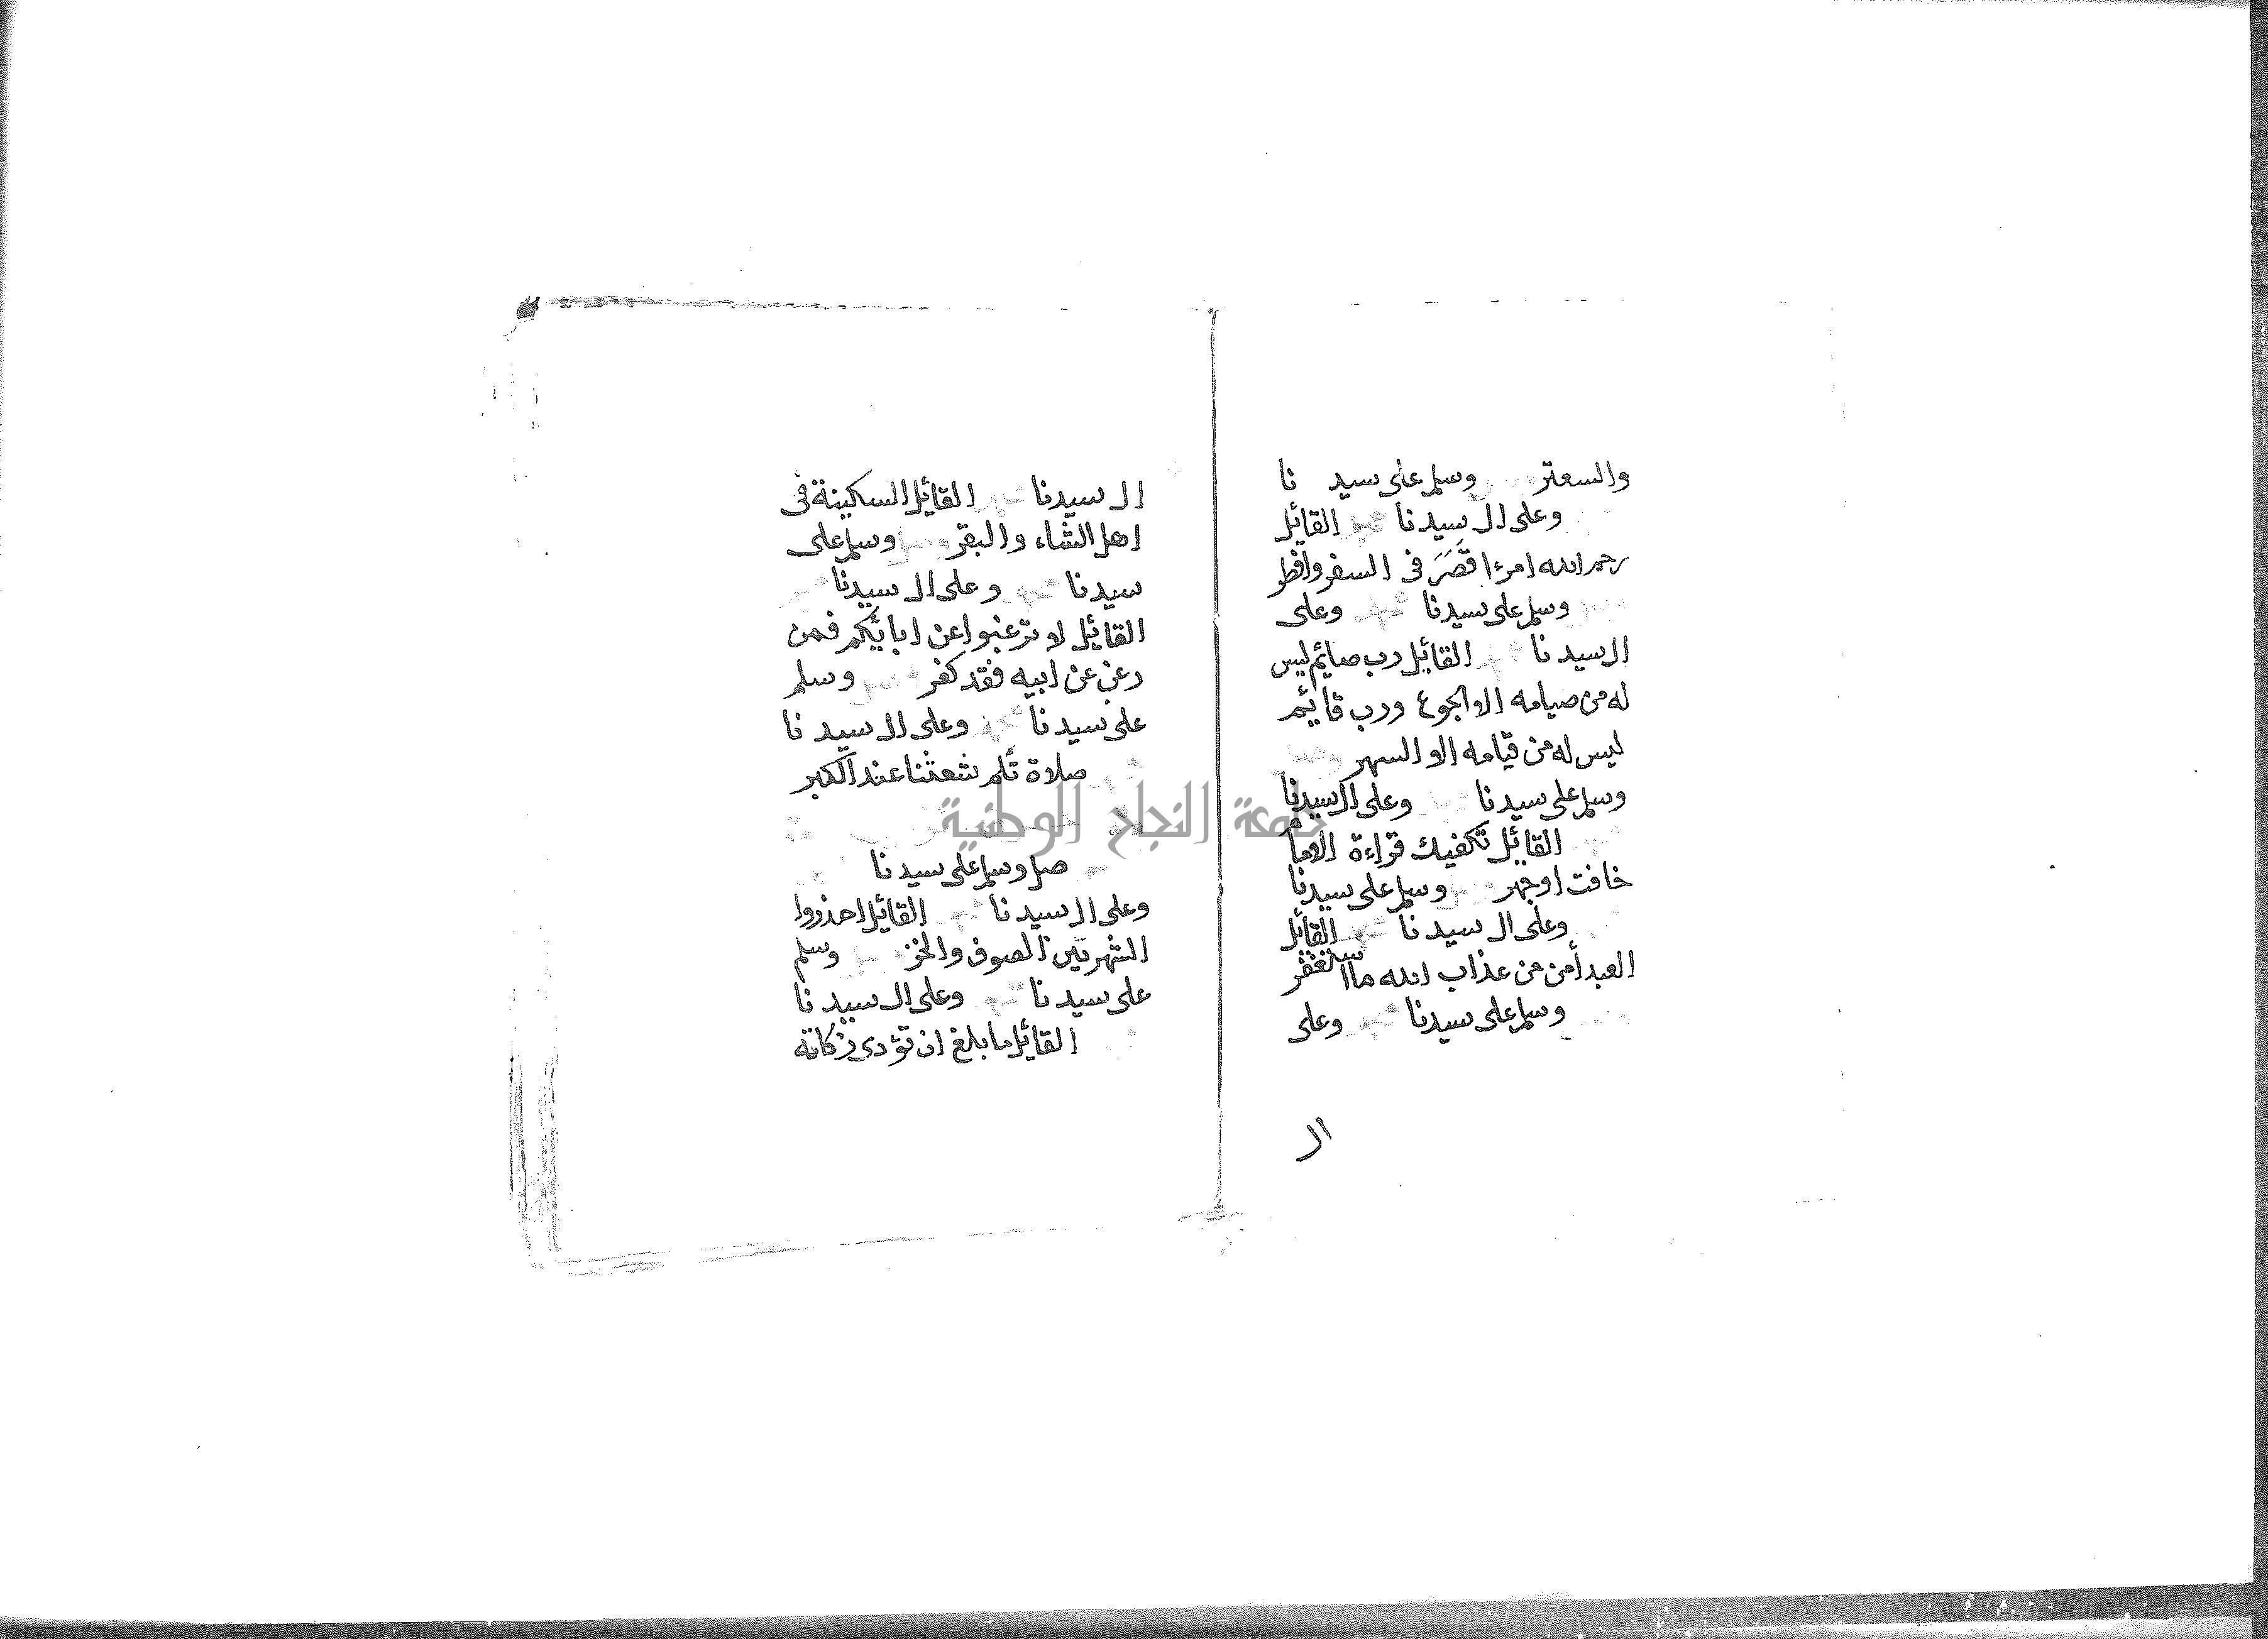 والسعتر وسلم على سيد نا
وعلى ال سيدنا القائل
رحم الله امرءا قصر فى السفر وافطر
وسلم على سيدنا وعلى
ال سيدنا القائل رب صايم ليس
له من صيامه الا الجوع ورب قايم
ليس له من قيامه الا السهر
وسلم على سيدنا وعلى ال سيدنا
القائل تكفيك قراءة الامام
خافت اوجهر وسلم على سيدنا
وعلى ال سيدنا القائل
العبد أمن من عذاب الله ما استغفر
وسلم على سيدنا وعلى
ال
ال سيدنا القائل السكينة فى
اهل الشاء والبقر وسلم على
سيدنا وعلى ال سيدنا
القائل لا ترغبوا عن ابائكم فمن
رغب عن ابيه فقد كفر وسلم
على سيدنا وعلى ال سيد نا
صلاة تلم شعثنا عند الكبر
صل وسلم على سيدنا
وعلى ال سيدنا القائل احذروا
الشهرتين الصوف والخز وسلم
على سيدنا وعلى ال سيد نا
القائل ما بلغ ان تؤدى زكاته
جامعة النجاح الوطنية